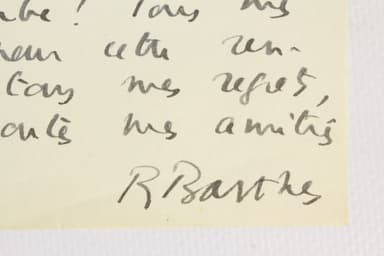 ! Tous mes
cette ren-
tous mes regrets,
mes amitiés
R Barthes